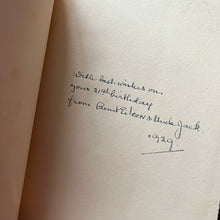 With best wishes on
your 21st birthday
from Aunt Eileen & Uncle Jack.
1929